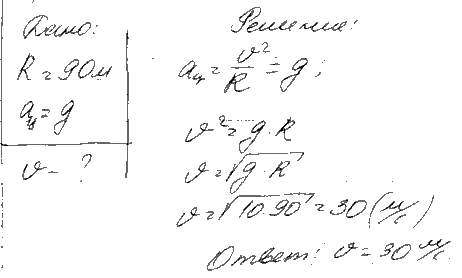 Дано:
R = 90м
aц = g
v - ?
Решение:
aц = v²/R = g;
v² = g·R
v = √(g·R)
v = √(10·90) = 30 (м/с)
Ответ: v = 30 м/с